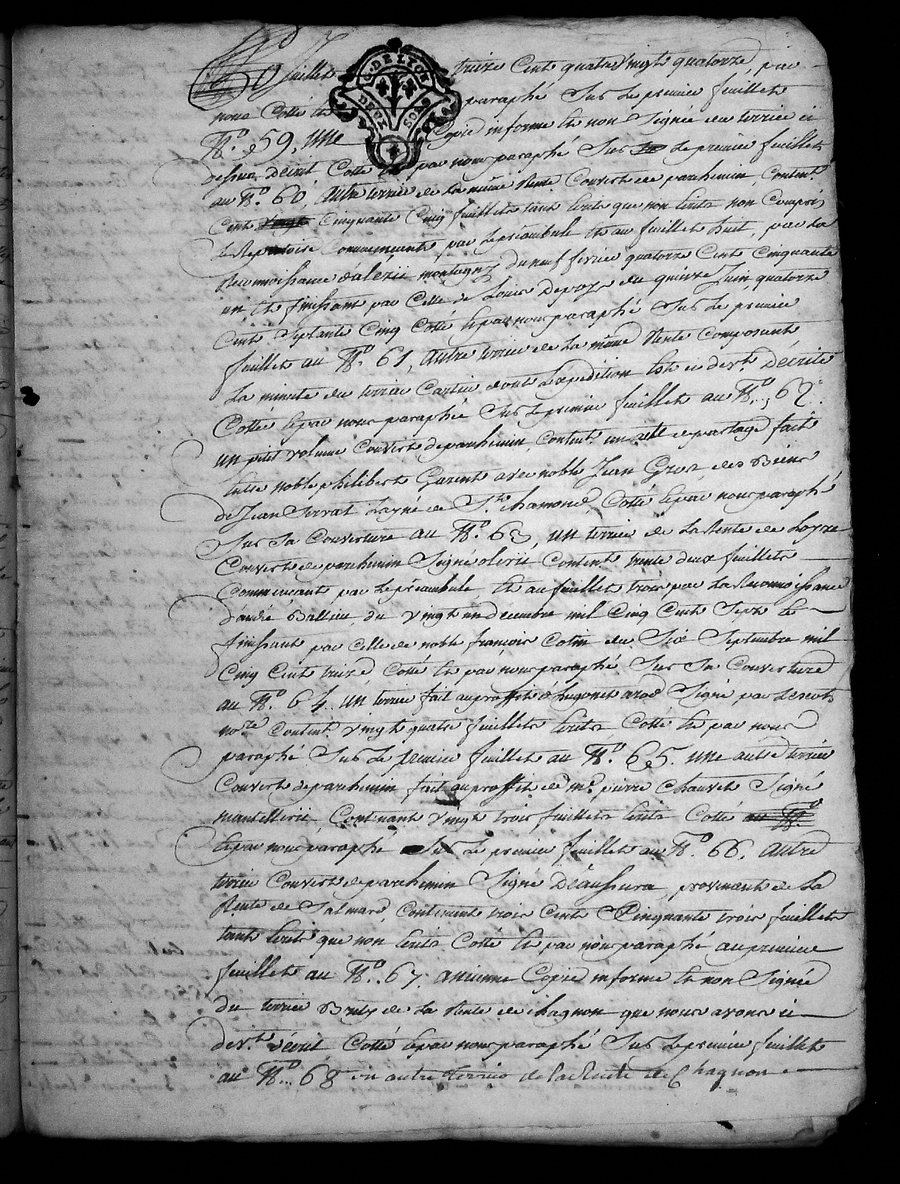 G. DE LYON
DEUX SOLS
Juillet treize Cent quatre vingts quatorze, par
nous Cotté et paraphé Sur Le premier feuillet
N.º 59, une Copie informe et non Signée du terrier ci
dessus décrit Cotté et par nous paraphé Sur Le premier feuillet
au N.º 60, autre terrier de La même Rente Couvert de parchemin, Content
Cent Cinquante Cinq feuillets tant ecrits que non ecrits non Compris
Le Repertoire Commençant par Le préambule et au feuillet huit, par La
Reconnoissance du neuf fevrier quatorze Cent Cinquante
un et finissant par Celle de Louis du quinze Juin quatorze
Cent Septante Cinq Cotté et par nous paraphé Sur Le premier
feuillet au N.º 61, autre terrier de La même Rente Composant
La minute du terrier dont L'expedition est ci dev.t décrite
Cotté et par nous paraphé Sur Le premier feuillet au N.º 62.
un petit volume Couvert de parchemin, Content un acte de partage fait
Entre noble philibert Garent avec noble Jean des Biens
de Jean L'ayné de S.t Chamond, Cotté et par nous paraphé
Sur Sa Couverture au N.º 63, un terrier de La Rente de
Couvert de parchemin Signé Content trente deux feuillets
Commençant par Le préambule, et au feuillet trois par La Reconnoissance
d'andré du Vingt un decembre mil Cinq Cent Sept et
finissant par Celle de noble françois du Six Septembre mil
Cinq Cent treize Cotté et par nous paraphé Sur Sa Couverture
au N.º 64. un terrier fait au proffit d'hugonet Signé par
no.re Content Vingt quatre feuillets ecrits Cotté et par nous
paraphé Sur Le premier feuillet au N.º 65. une autre terrier
Couvert de parchemin fait au proffit de m.e pierre Chauvet Signé
Contenant Vingt trois feuillets ecrits Cotté
et par nous paraphé Sur Le premier feuillet au N.º 66. autre
terrier Couvert de parchemin Signé provenant de La
Rente de Salmard, Contenant trois Cent Cinquante trois feuillets
tant ecrits que non ecrits Cotté et par nous paraphé au premier
feuillet au N.º 67. ancienne Copie informe et non Signée
du terrier de La Rente de Chagnon que nous avons ci
dev.t décrit Cotté et par nous paraphé Sur Le premier feuillet
au N.º 68 un autre terrier de La Rente de Chagnon